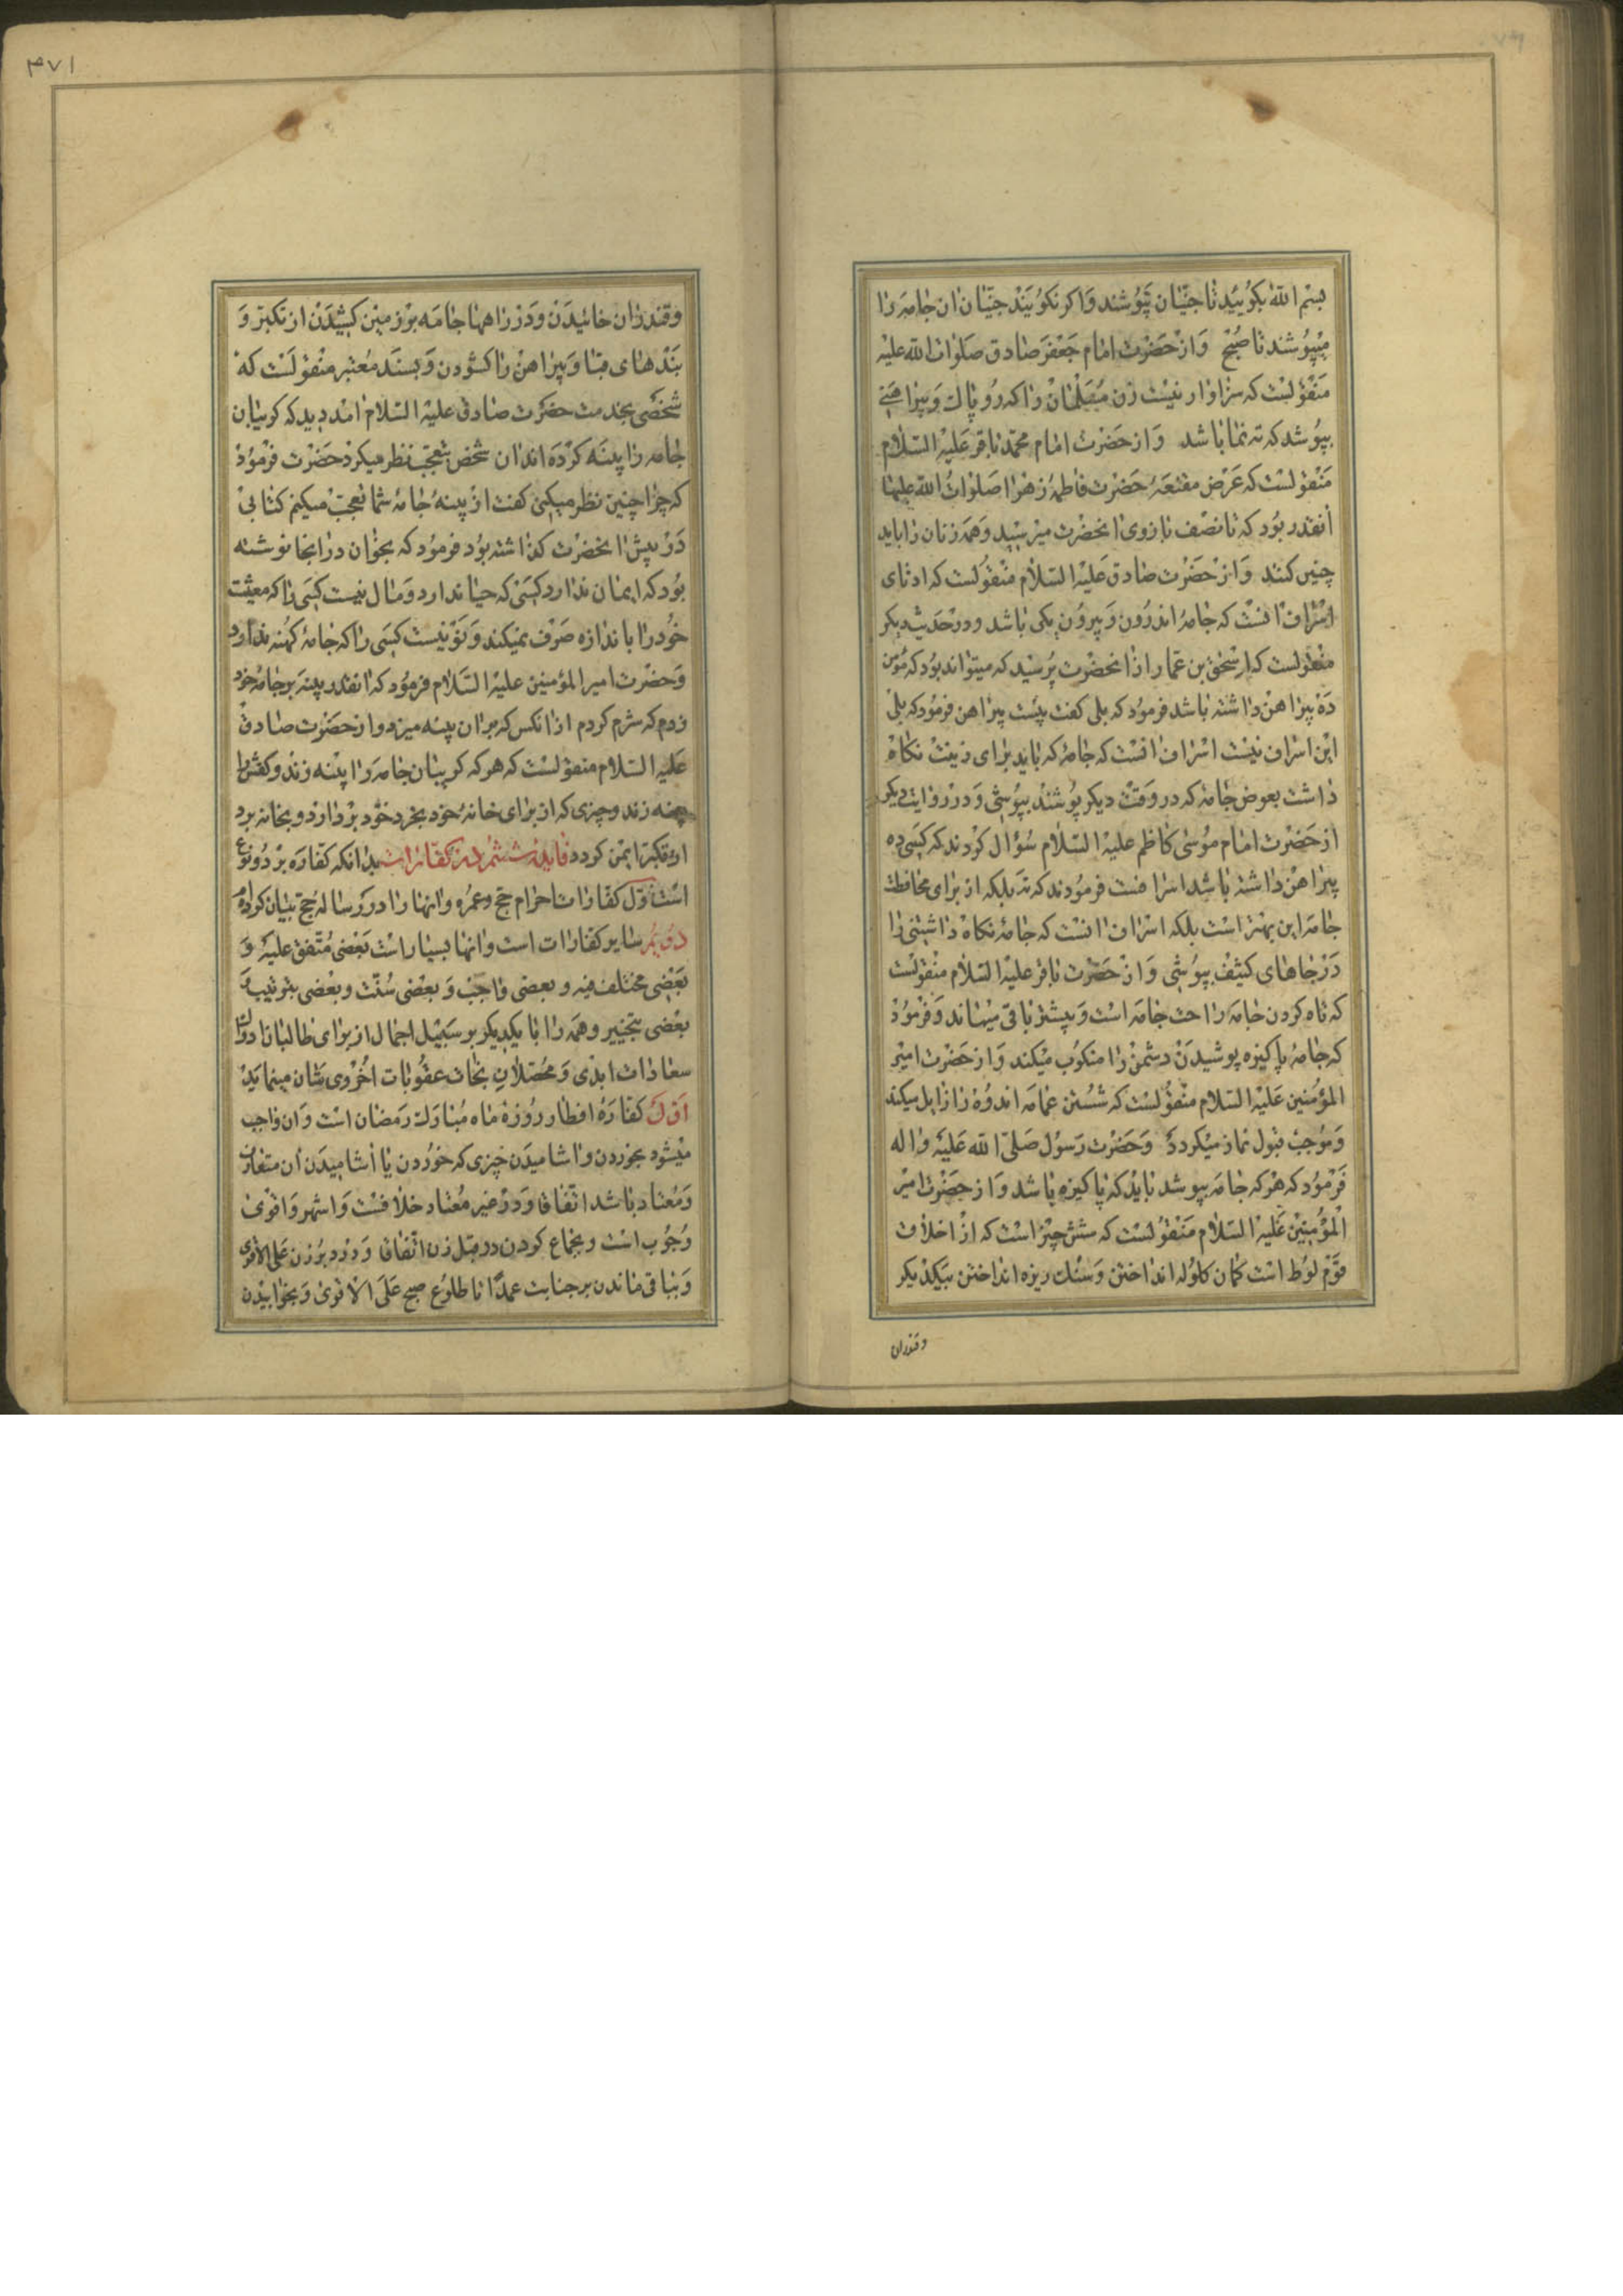 بسم الله بکویید تا جنیان نپوشند و اکر نکویند جنیان ان جامه را
میپوشند تا صبح و از حضرت امام جعفر صادق صلوات الله علیه
منقولست که سزاوار نیست زن مسلمان را که روپاک و پیراهنی
بپوشد که ته نما باشد و از حضرت امام محمد باقر علیه السلام
منقولست که عرض مقنعه حضرت فاطمه زهرا صلوات الله علیها
انقدر بود که تا نصف بازوی انحضرت میرسید و همه زنان را باید
چنین کنند و از حضرت صادق علیه السلام منقولست که ادنای
اسراف انست که جامه اندرون و بیرون یکی باشد و در حدیث دیکر
منقولست که اسحق بن عمار از انحضرت پرسید که میتواند بود که مؤمن
ده پیراهن داشته باشد فرمود که بلی کفت بیست پیراهن فرمود که بلی
این اسراف نیست اسراف انست که جامه که باید برای زینت نکاه
داشت بعوض جامه که در وقت دیکر پوشند بپوشی و در روایت دیکر
از حضرت امام موسی کاظم علیه السلام سؤال کردند که کسی ده
پیراهن داشته باشد اسرافست فرمودند که نه بلکه از برای محافظت
جامه این بهتر است بلکه اسراف انست که جامه نکاه داشتنی را
در جاهای کثیف بپوشی و از حضرت باقر علیه السلام منقولست
که تاه کردن جامه راحت جامه است و بیشتر باقی میماند و فرمود
که جامه پاکیزه پوشیدن دشمن را منکوب میکند و از حضرت امیر
المؤمنین علیه السلام منقولست که شستن عمامه اندوه را زایل میکند
و موجب قبول نماز میکردد و حضرت رسول صلی الله علیه و اله
فرمود که هرکه جامه بپوشد باید که پاکیزه باشد و از حضرت امیر
المؤمنین علیه السلام منقولست که شش چیز است که از اخلاق
قوم لوط است کمان کلوله انداختن و سنک ریزه انداختن بیکدیکر
وقندران
۳۷۱
وقندران خائیدن و در راهها جامه بر زمین کشیدن از تکبر و
بندهای قبا و پیراهن را کشودن و بسند معتبر منقولست که
شخصی بخدمت حضرت صادق علیه السلام امد دید که کریبان
جامه را پینه کرده اند ان شخص تعجب نظر میکرد حضرت فرمود
که چرا چنین نظر میکنی کفت از پینه جامه شما تعجب میکنم کتابی
در پیش انحضرت کذاشته بود فرمود که بخوان در اینجا نوشته
بود که ایمان ندارد کسی که حیا ندارد و مال نیست کسی را که معیشت
خود را باندازه صرف نمیکند و نو نیست کسی را که جامه کهنه ندارد
و حضرت امیر المؤمنین علیه السلام فرمود که انقدر پینه بر جامه خود
زدم که شرم کردم از انکس که بر ان پینه میزد و از حضرت صادق
علیه السلام منقولست که هرکه کریبان جامه را پینه زند و کفش را
پینه زند و چیزی که از برای خانه خود بخرد خود بردارد و بخانه برد
از تکبر ایمن کردد فایده ششم در کفارات بدانکه کفاره بر دو نوع
است اول کفارات احرام حج و عمره و انها را در رساله حج بیان کرده
دویم سایر کفارات است و انها بسیار است بعضی متفق علیه و
بعضی مختلف فیه و بعضی واجب و بعضی سنت و بعضی بترتیب و
بعضی بتخییر و همه را با یکدیکر بر سبیل اجمال از برای طالبان
سعادات ابدی و محصلان نجات عقوبات اخروی بیان مینماید
اول کفاره افطار روزه ماه مبارک رمضان است و ان واجب
میشود بخوردن و اشامیدن چیزی که خوردن یا اشامیدن ان متعارف
و معتاد باشد اتفاقا و در غیر معتاد خلافست و اشهر و اقوی
وجوب است و بجماع کردن در قبل زن اتفاقا و در دبر زن علی الاقوی
و بباقی ماندن بر جنابت عمدا تا طلوع صبح علی الاقوی و بخوابیدن